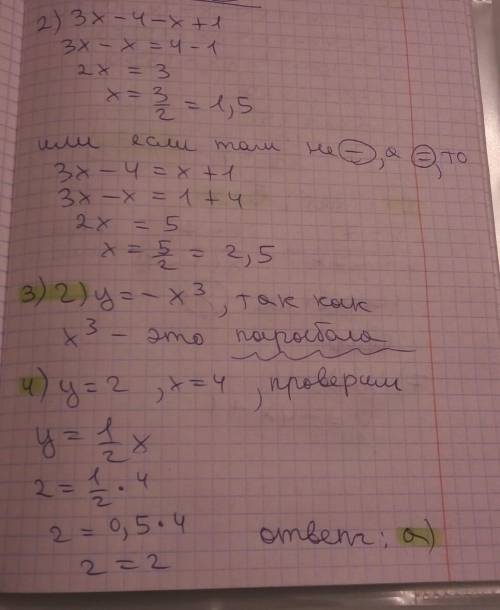 2) 3x - 4 - x + 1
3x - x = 4 - 1
2x = 3
x = 3/2 = 1,5
или если там не -, а =, то
3x - 4 = x + 1
3x - x = 1 + 4
2x = 5
x = 5/2 = 2,5
3) 2) y = - x³, так как
x³ - это парабола
4) y = 2, x = 4, проверим
y = 1/2 x
2 = 1/2 · 4
2 = 0,5 · 4 ответ: а)
2 = 2